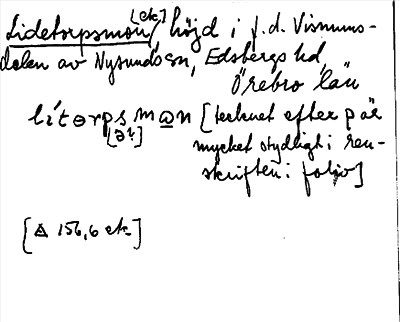 Lidetorpsmon [ek] höjd i f.d. Visnums-
delen av Nysunds sn, Edsbergs hd,
Örebro län
lítɵrpsmɷn [tecknet efter p är
[ər] mycket otydligt i ren-
skriften i folio]
[∆ 156,6 ek]